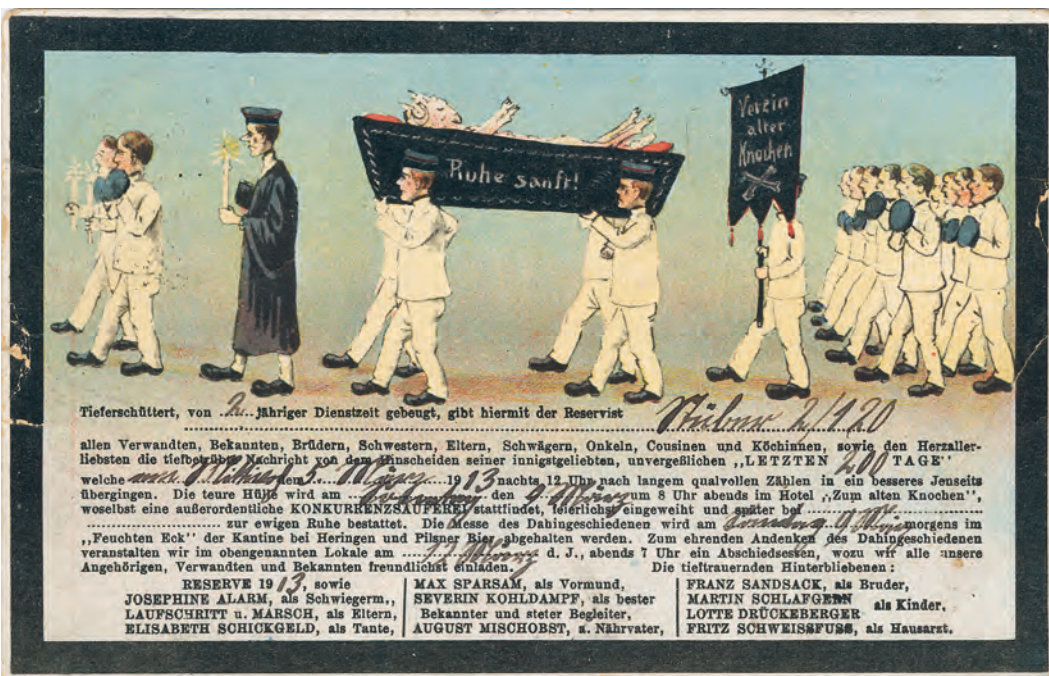 Ruhe sanft!
Verein
alter
Knochen
Tieferschüttert, von 2 jähriger Dienstzeit gebeugt, gibt hiermit der Reservist
Stüber 2/120
allen Verwandten, Bekannten, Brüdern, Schwestern, Eltern, Schwägern, Onkeln, Cousinen und Köchinnen, sowie den Herzaller-
liebsten die tiefbetrübte Nachricht von dem Hinscheiden seiner innigstgeliebten, unvergeßlichen „LETZTEN 200 TAGE"
welche am Mittwoch den 5. März 1913 nachts 12 Uhr nach langem qualvollen Zählen in ein besseres Jenseits
übergingen. Die teure Hülle wird am den März um 8 Uhr abends im Hotel „Zum alten Knochen",
woselbst eine außerordentliche KONKURRENZSAUFEREI stattfindet, feierlichst eingeweiht und später bei
zur ewigen Ruhe bestattet. Die Messe des Dahingeschiedenen wird am Sonntag 9. März morgens im
„Feuchten Eck" der Kantine bei Heringen und Pilsner Bier abgehalten werden. Zum ehrenden Andenken des Dahingeschiedenen
veranstalten wir im obengenannten Lokale am März d. J., abends 7 Uhr ein Abschiedsessen, wozu wir alle unsere
Angehörigen, Verwandten und Bekannten freundlichst einladen. Die tieftrauernden Hinterbliebenen:
RESERVE 1913, sowie
JOSEPHINE ALARM, als Schwiegerm.,
LAUFSCHRITT u. MARSCH, als Eltern,
ELISABETH SCHICKGELD, als Tante,
MAX SPARSAM, als Vormund,
SEVERIN KOHLDAMPF, als bester
Bekannter und steter Begleiter,
AUGUST MISCHOBST, a. Nährvater,
FRANZ SANDSACK, als Bruder,
MARTIN SCHLAFGERN
LOTTE DRÜCKEBERGER als Kinder,
FRITZ SCHWEISSFUSS, als Hausarzt.